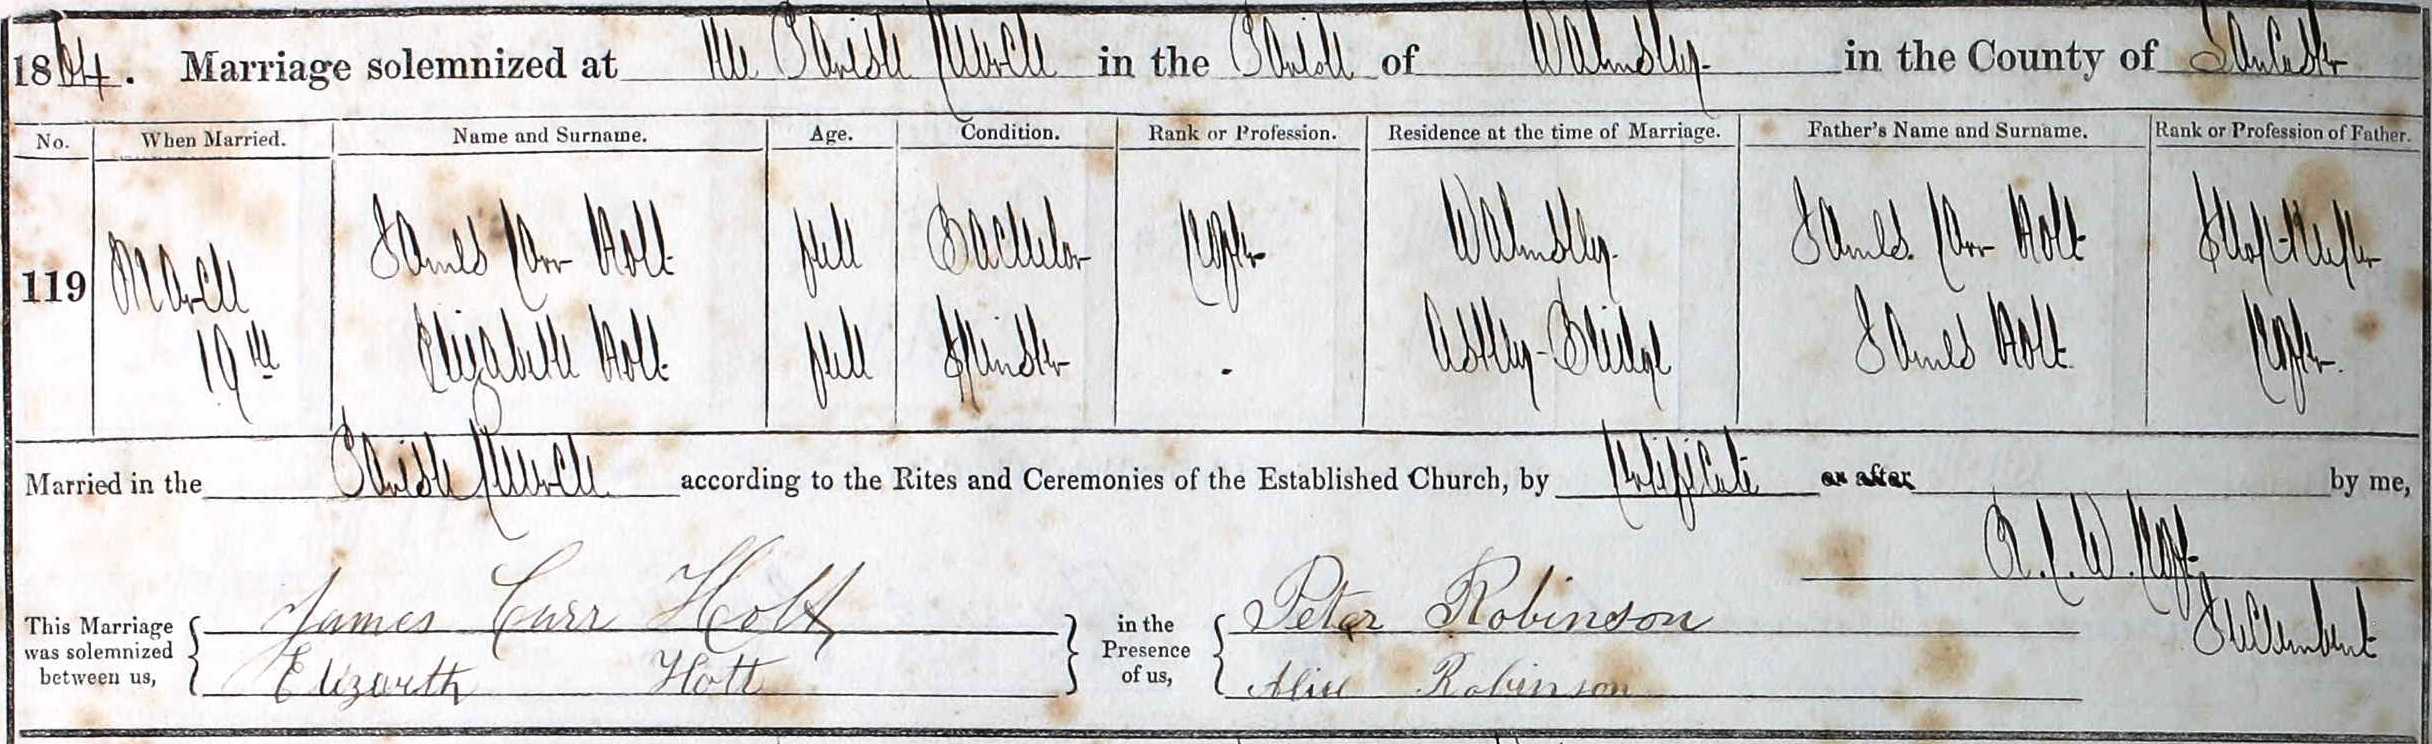 1864. Marriage solemnized at the Parish Church in the Parish of Walmsley in the County of Lancaster
No. When Married. Name and Surname. Age. Condition. Rank or Profession. Residence at the time of Marriage. Father's Name and Surname. Rank or Profession of Father.
119 March 19th James Carr Holt full Bachelor Walmsley. James Carr Holt
Elizabeth Holt full Spinster - Astley-Bridge James Holt
Married in the Parish Church according to the Rites and Ceremonies of the Established Church, by Certificate or after by me,
This Marriage was solemnized between us, James Carr Holt in the Presence of us, Peter Robinson
Elizabeth Holt Alice Robinson Incumbent